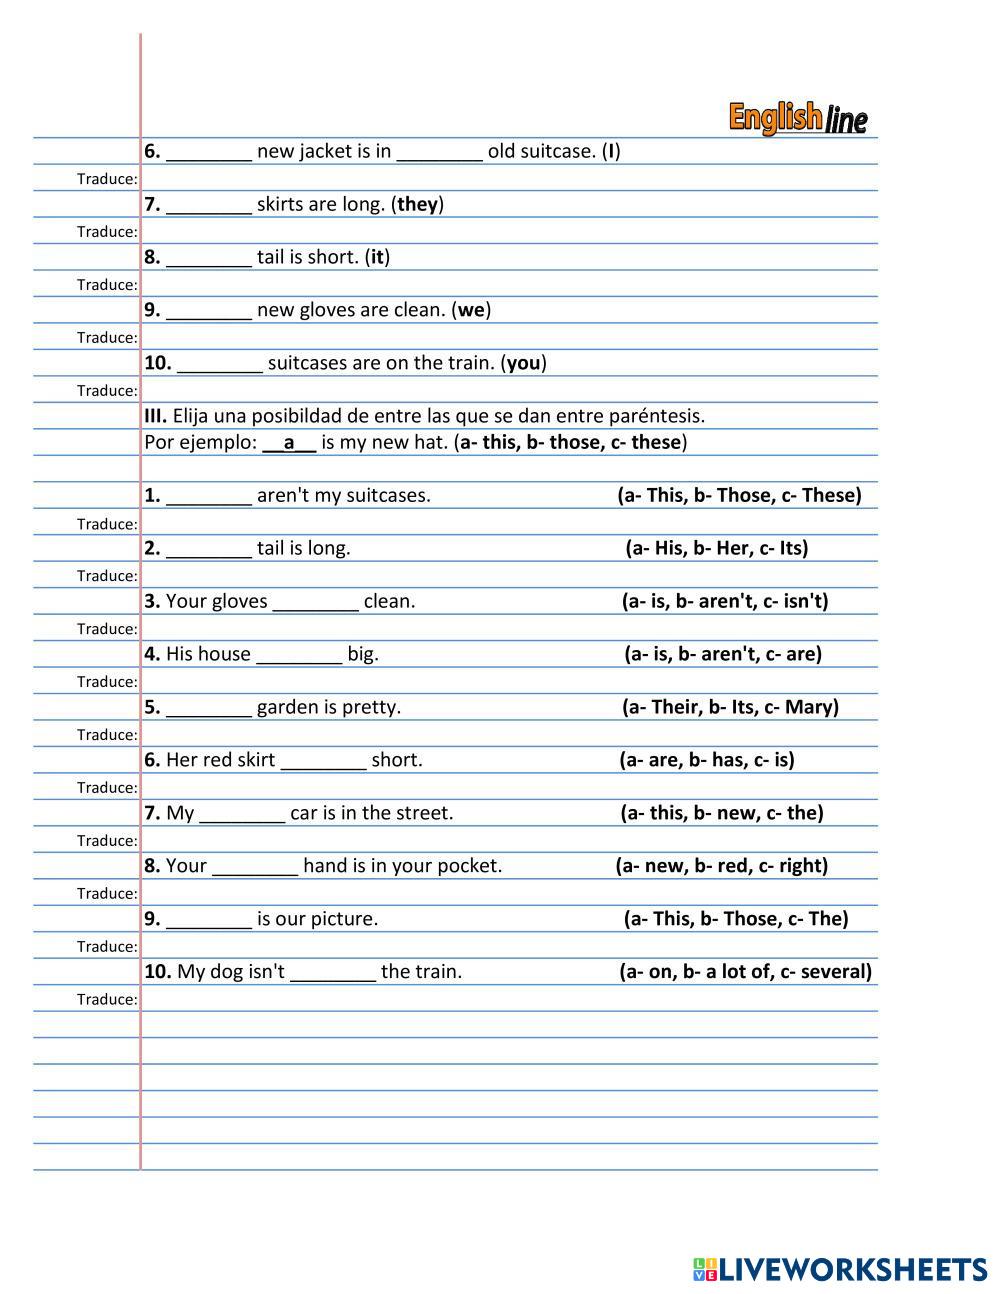 English line
6. ________ new jacket is in ________ old suitcase. (I)
Traduce:
7. ________ skirts are long. (they)
Traduce:
8. ________ tail is short. (it)
Traduce:
9. ________ new gloves are clean. (we)
Traduce:
10. ________ suitcases are on the train. (you)
Traduce:
III. Elija una posibildad de entre las que se dan entre paréntesis.
Por ejemplo: __a__ is my new hat. (a- this, b- those, c- these)
1. ________ aren't my suitcases. (a- This, b- Those, c- These)
Traduce:
2. ________ tail is long. (a- His, b- Her, c- Its)
Traduce:
3. Your gloves ________ clean. (a- is, b- aren't, c- isn't)
Traduce:
4. His house ________ big. (a- is, b- aren't, c- are)
Traduce:
5. ________ garden is pretty. (a- Their, b- Its, c- Mary)
Traduce:
6. Her red skirt ________ short. (a- are, b- has, c- is)
Traduce:
7. My ________ car is in the street. (a- this, b- new, c- the)
Traduce:
8. Your ________ hand is in your pocket. (a- new, b- red, c- right)
Traduce:
9. ________ is our picture. (a- This, b- Those, c- The)
Traduce:
10. My dog isn't ________ the train. (a- on, b- a lot of, c- several)
Traduce:
LIVE LIVEWORKSHEETS